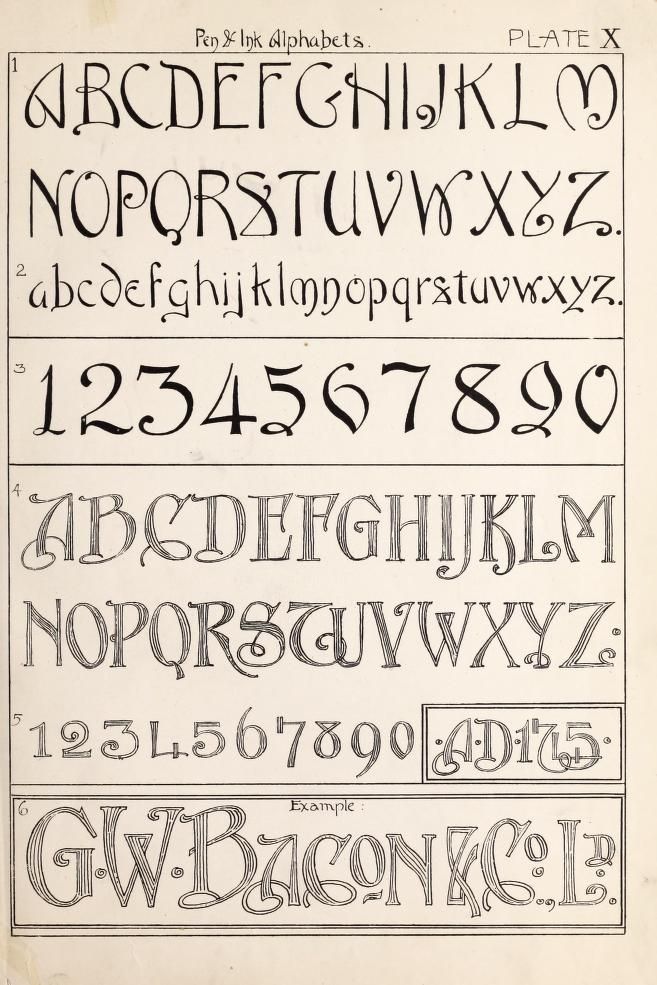 Pen & Ink Alphabets.
PLATE X
1
ABCDEFGHIJKLM
NOPQRSTUVWXYZ.
2 abcdefghijklmnopqrstuvwxyz.
3
1234567890
4
ABCDEFGHIJKLM
NOPQRSTUVWXYZ:
5 1234567890
·A·D·1745·
6 Example :
G·W·BACON & Co., LD.